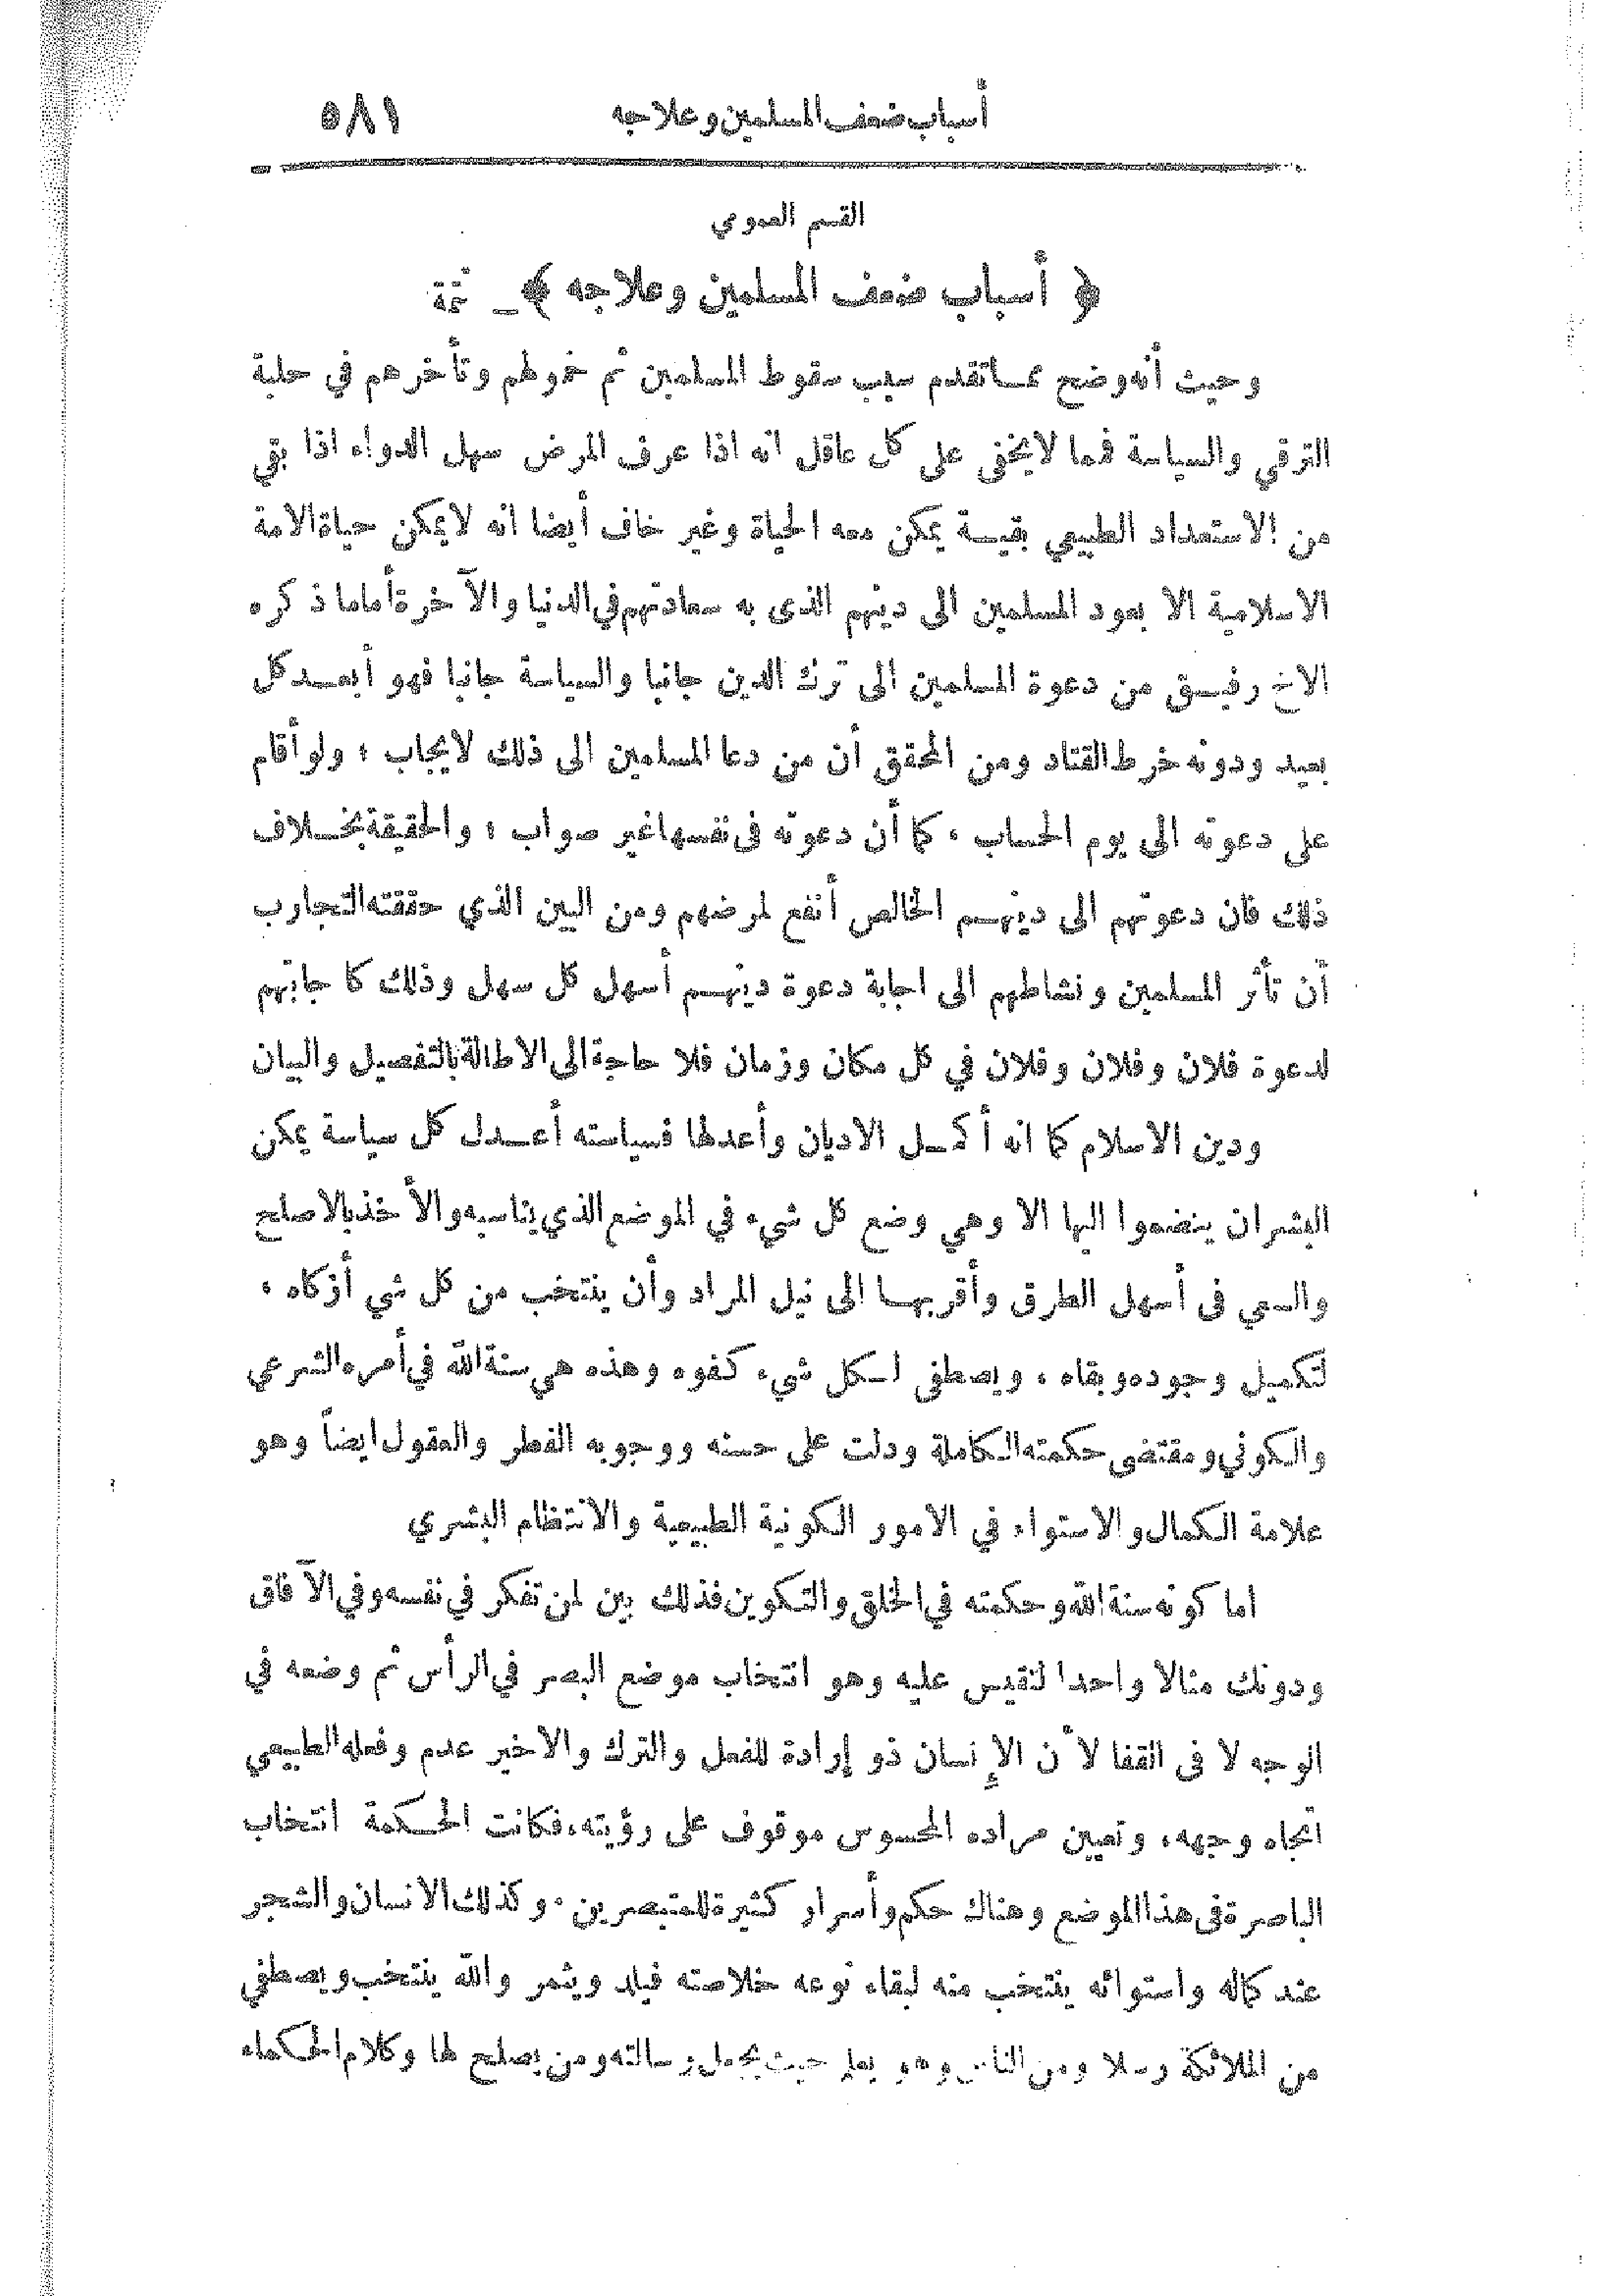 أسباب ضعف المسلمين وعلاجه ٥٨١
القسم العمومي
﴿ أسباب ضعف المسلمين وعلاجه ﴾ _ تتمة
وحيث أنه وضح مما تقدم سبب سقوط المسلمين ثم خمولهم وتأخرهم في حلبة
الترقي والسياسة فمما لايخفى على كل عاقل انه اذا عرف المرض سهل الدواء اذا بقي
من الاستعداد الطبيعي بقية يمكن معه الحياة وغير خاف أيضا انه لايمكن حياة الامة
الاسلامية الا بعود المسلمين الى دينهم الذى به سعادتهم في الدنيا والآخرة أما ما ذكره
الاخ رفيق من دعوة المسلمين الى ترك الدين جانبا والسياسة جانبا فهو أبعد كل
بعيد ودونه خرط القتاد ومن المحقق أن من دعا المسلمين الى ذلك لايجاب ؛ ولو أقام
على دعوته الى يوم الحساب ، كما أن دعوته فى نفسها غير صواب ؛ والحقيقة بخلاف
ذلك فان دعوتهم الى دينهم الخالص أنفع لمرضهم ومن البين الذي حققته التجارب
أن تأثر المسلمين ونشاطهم الى اجابة دعوة دينهم أسهل كل سهل وذلك كاجابتهم
لدعوة فلان وفلان وفلان في كل مكان وزمان فلا حاجة الى الاطالة بالتفصيل والبيان
ودين الاسلام كما انه أكمل الاديان وأعدلها فسياسته أعدل كل سياسة يمكن
البشر ان ينضموا اليها الا وهي وضع كل شيء في الموضع الذي يناسبه والأخذ بالاصلح
والسعي فى أسهل الطرق وأقربها الى نيل المراد وأن ينتخب من كل شي أزكاه ،
لتكميل وجوده وبقاه ، ويصطفى لكل شيء كفوه وهذه هي سنة الله في أمره الشرعي
والكوني ومقتضى حكمته الكاملة ودلت على حسنه ووجوبه الفطر والعقول ايضاً وهو
علامة الكمال والاستواء في الامور الكونية الطبيعية والانتظام البشري
اما كونه سنة الله وحكمته في الخلق والتكوين فذلك بين لمن تفكر في نفسه وفي الآفاق
ودونك مثالا واحدا لتقيس عليه وهو انتخاب موضع البصر في الرأس ثم وضعه في
الوجه لا فى القفا لأن الإنسان ذو إرادة للفعل والترك والاخير عدم وفعله الطبيعي
اتجاه وجهه، وتعيين مراده المحسوس موقوف على رؤيته، فكانت الحكمة انتخاب
الباصرة فى هذا الموضع وهناك حكم وأسرار كثيرة للمتبصرين . وكذلك الانسان والشجر
عند كماله واستوائه ينتخب منه لبقاء نوعه خلاصته فيلد ويثمر والله ينتخب ويصطفي
من الملائكة رسلا ومن الناس وهو يعلم حيث يجعل رسالته ومن يصلح لها وكلام الحكماء